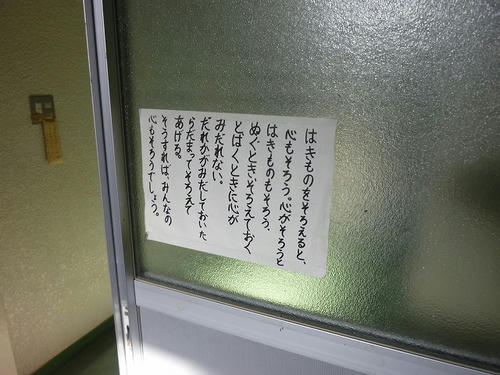 はきものをそろえると、
心もそろう。心がそろうと
はきものもそろう、
ぬぐときにそろえておく
とはくときに心が
みだれない。
だれかがみだしておいた
らだまってそろえて
あげる。
そうすれば、みんなの
心もそろうでしょう。